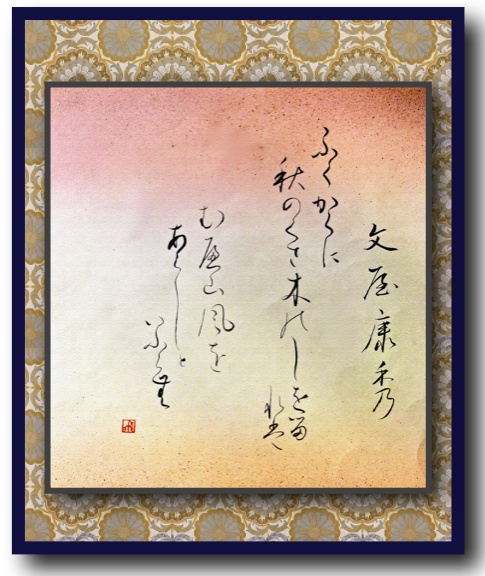 文屋康秀
ふくからに
秋のくさ木のしを留
れは
む遍山風を
あらしと
いふら無